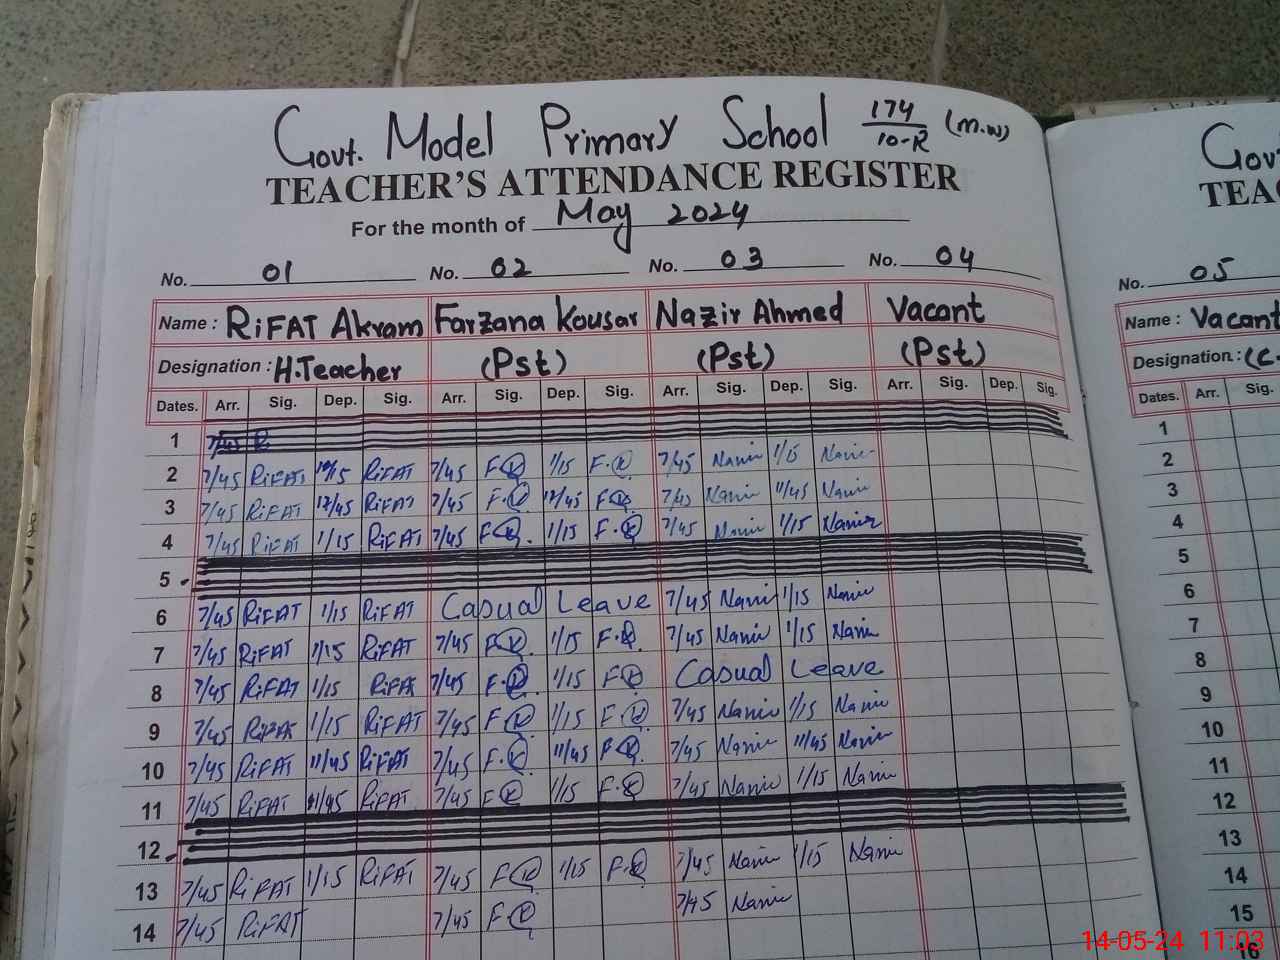 Govt. Model Primary School 174/10-R (M.W)
TEACHER'S ATTENDANCE REGISTER
For the month of May 2024
No. 01 No. 02 No. 03 No. 04
Name : RiFAT Akram Farzana Kousar Nazir Ahmed Vacant
Designation : H.Teacher (Pst) (Pst) (Pst)
Dates. Arr. Sig. Dep. Sig. Arr. Sig. Dep. Sig. Arr. Sig. Dep. Sig. Arr. Sig. Dep. Sig.
1 7/45 R
2 7/45 RiFAT RiFAT 7/45 F.K 1/15 F.K 7/45 Nazir 1/15 Nazir
3 7/45 RiFAT 12/45 RiFAT 7/45 F.K 12/45 F.K 7/45 Nazir 11/45 Nazir
4 7/45 RiFAT 1/15 RiFAT 7/45 F.K 1/15 F.K 7/45 Nazir 1/15 Nazir
5
6 7/45 RiFAT 1/15 RiFAT Casual Leave 7/45 Nazir 1/15 Nazir
7 7/45 RiFAT 1/15 RiFAT 7/45 F.K 1/15 F.K 7/45 Nazir 1/15 Nazir
8 7/45 RiFAT 1/15 RiFA 7/45 F.K 1/15 F.K Casual Leave
9 7/45 RiFAT 1/15 RiFAT 7/45 F.K 1/15 F.K 7/45 Nazir 1/15 Nazir
10 7/45 RiFAT 11/45 RiFAT 7/45 F.K 11/45 F.K 7/45 Nazir 11/45 Nazir
11 7/45 RiFAT RiFAT 7/45 F.K 1/15 F.K 7/45 Nazir 1/15 Nazir
12
13 7/45 RiFAT 1/15 RiFAT 7/45 F.K 1/15 F.K 7/45 Nazir 1/15 Nazir
14 7/45 RiFAT 7/45 F.K 7/45 Nazir
Gov
TEAC
No. 05
Name : Vacant
Designation : (C.
Dates. Arr. Sig.
1
2
3
4
5
6
7
8
9
10
11
12
13
14
15
16
14-05-24 11:03